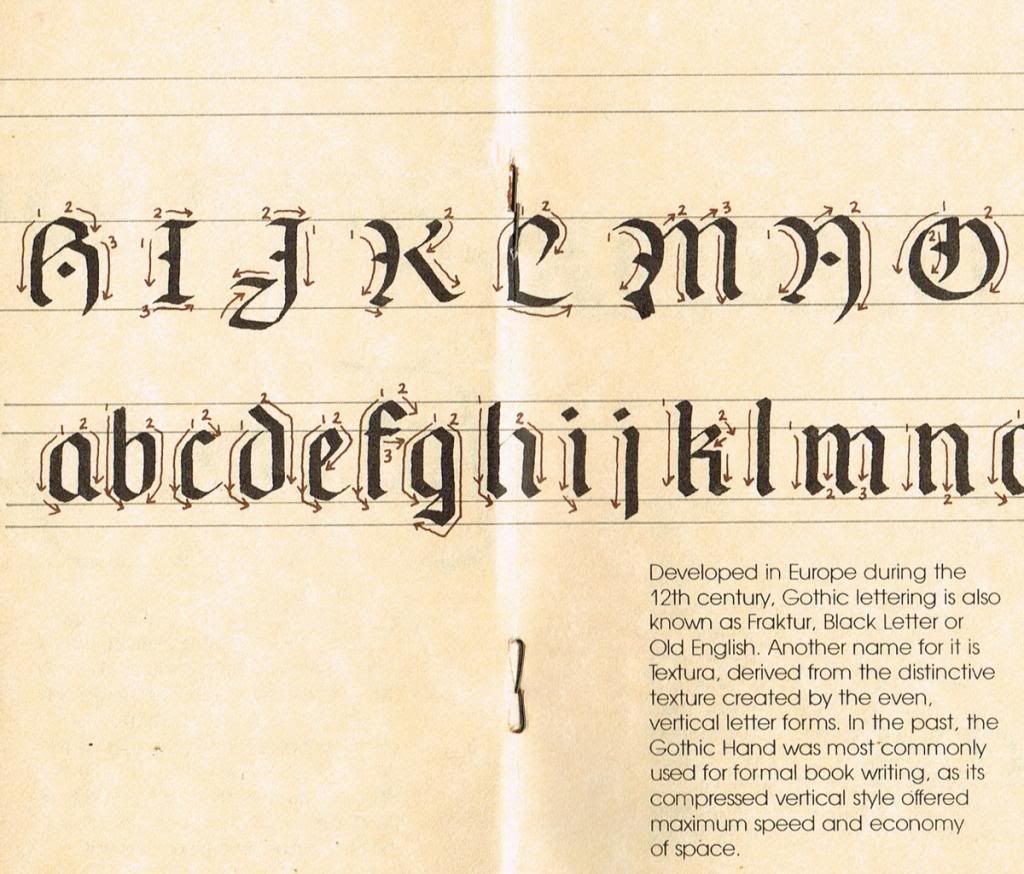 H I J K L M N O
a b c d e f g h i j k l m n o
Developed in Europe during the
12th century, Gothic lettering is also
known as Fraktur, Black Letter or
Old English. Another name for it is
Textura, derived from the distinctive
texture created by the even,
vertical letter forms. In the past, the
Gothic Hand was most commonly
used for formal book writing, as its
compressed vertical style offered
maximum speed and economy
of space.